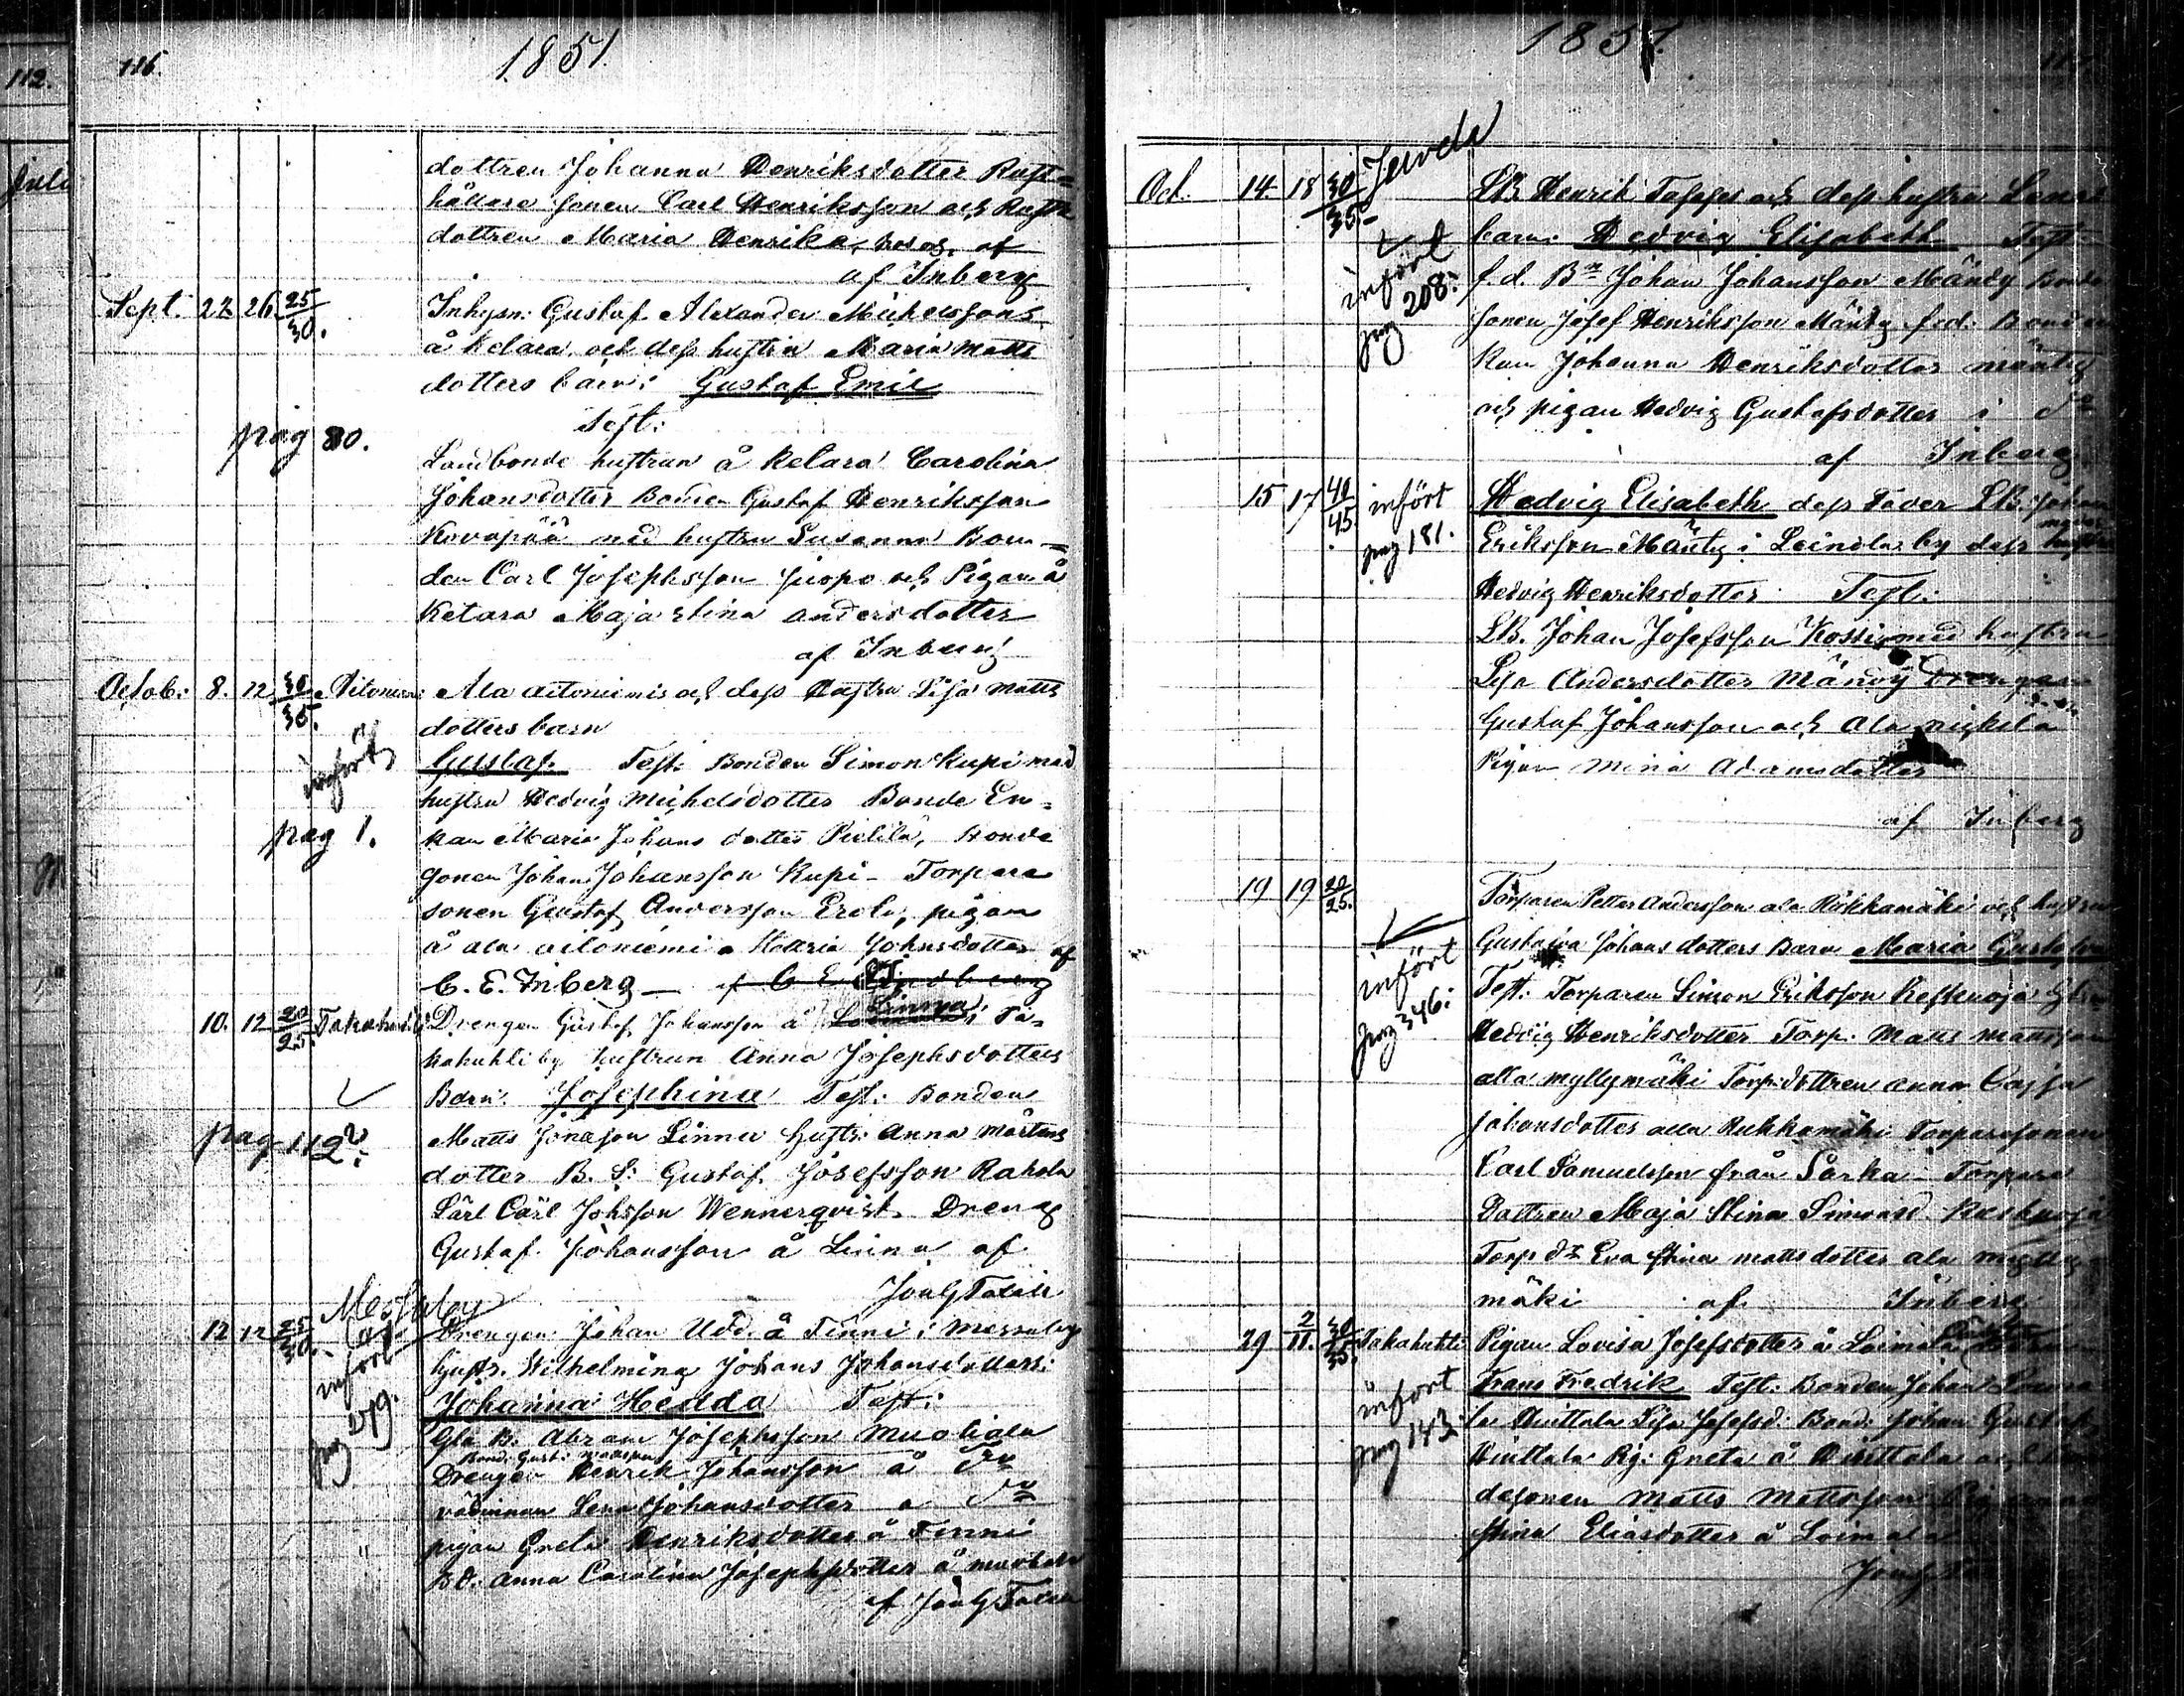 112.
Juli
116.
1851.
dottren Johanna Henriksdotter Rust=
hållare sonen Carl Henriksson och Rusth
dottren Maria Henrika
af Inberg
Sept. 22 26 25/30. Inhysn: Gustaf Alexander Michelssons
å Kelara och dess hustru Maria Matts
dotters barn: Gustaf Emil
pag 80.
Test:
Landbonde hustrun å Kelara Carolina
Johansdotter Bonden Gustaf Henriksson
Korvapää med hustru Susanna Bon=
den Carl Josephsson Juopo och Pigan å
Ketara Maja Stina Andersdotter
af Inberg
Octob: 8. 12 30/35. Aitoniemi Ala aitoniemis och dess Hustru Lisa Matts
dotters barn
infört
Gustaf. Test. Bonden Simon Kupi med
hustru Hedvig Michelsdotter Bonde En=
pag 1.
kan Maria Johans dotter Pietilä, Bonde
sonen Johan Johansson Kupi - Torpare
sonen Gustaf Andersson Erola, pigan
å ala aitoniemi Johansdotter af
C. E. Inberg
10. 12 20/25. Takahuhti Drengen Gustaf Johansson å Linna i Ta-
kahuhti by hustrun Anna Josephsdotters
Barn: Josephina Test: Bonden
pag 112:
Matts Jonasson Linna Hustr: Anna Mårtens
dotter B. S: Gustaf Josefsson Rahola
Lärl Carl Johsson Wennerqvist Dreng
Gustaf Johansson å Linna af
Messuby
12 12 25/30. Drengen Johan Udd å Finni i Messuby
infört
Hustr. Wilhelmina Johans Johansdotters:
Johanna Hedda Test:
pag 279.
Gla B. Abram Josephsson Muotiala
Bond: Gust: Mattsson
Drengen Henrik Johansson å do
värdinnan Lena Johansdotter a do
pigan Greta Henriksdotter å Finni
B d. Anna Carolina Josephsdotter å
af
1851.
Oct. 14. 18 30/35 LB. Henrik Josefss och dess hustru
barn: Hedvig Elisabeth Test
infört
pag 208.
f. d. Bn Johan Johansson Mändy Bonde
sonen Josef Henriksson Mänty fd: Bonden
kan Johanna Henriksdotter mänty
och pigan Hedvig Gustafsdotter i do
af Inberg
15 17 40/45. infört Hedvig Elisabeth dess Fader LB.
pag 181.
Eriksson Mänty i Leinola by dess
Hedvig Henriksdotter Test:
LB. Johan Josefsson Kossi med hustru
Lisa Andersdotter Mändy Drengen
Gustaf Johansson och Ala nickilä
Pigan Mina Adamsdotter
af Inberg
19 19 20/25. Torparen Petter Andersson ala Rukkamäki och hustru
infört
Gustafva Johans dotters Barn Maria Gustafva
pag 346.
Test: Torparen Simon Eriksson
Hedvig Henriksdotter Torp. Matts Mattsson
alla myllymäki Torp:dottren Anna Cajsa
johansdotter alla Rukkamäki Torparesonen
Carl Samuelsson från Särka - Torpare
Dattren Maja Stina Simonsd
Torp dr Eva Stina matts dotter ala mylly
mäki af Inberg
29 2/11. 30/35. Takahuhti Pigan Lovisa Josefsdotter å Loimala
infört
Frans Fredrik Test: Bonden Johan
pag 143
Huittala Lisa Josefsd: Bond: Johan
Huittala Pig: Greta å Huittala
desonen Matts Mattsson
Stina Eliasdotter å Loimala